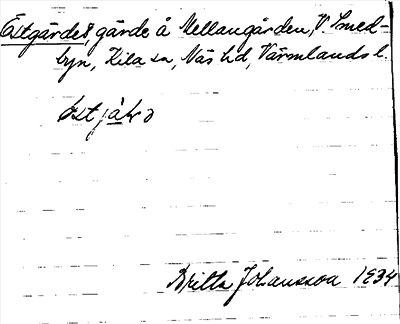 Östgärdet, gärde å Mellangården, V. Smed-
byn, Kila sn, Näs hd, Värmlands l.
Britta Johansson 1934